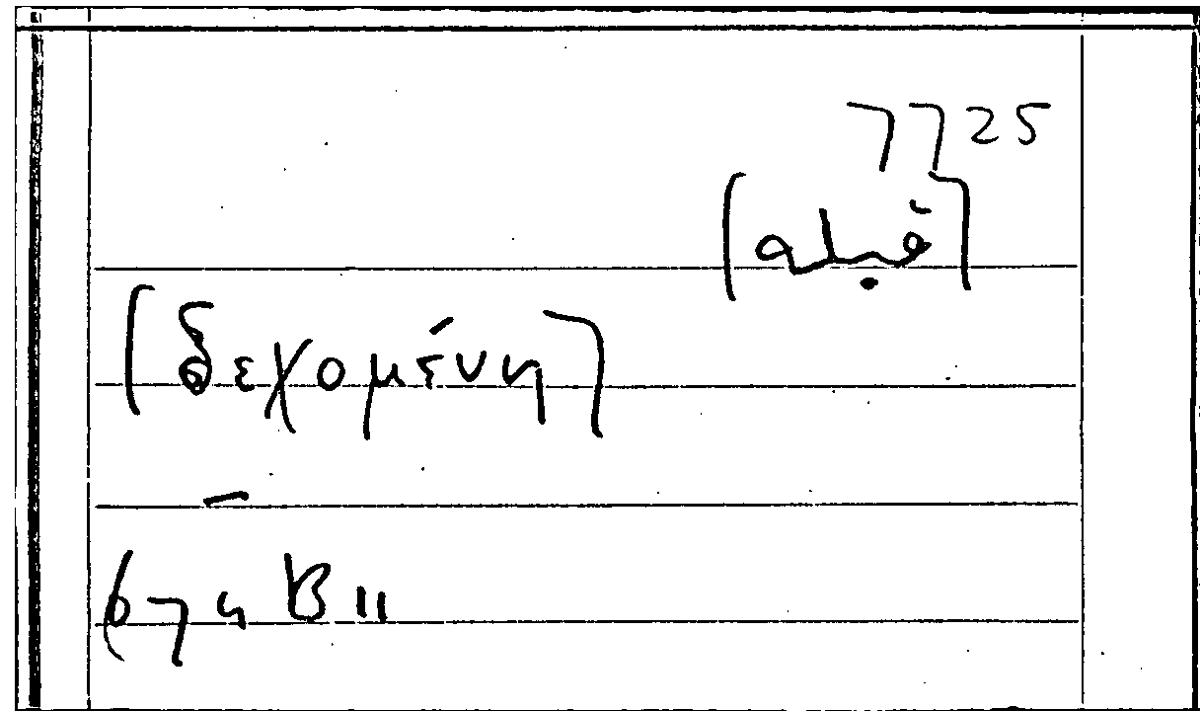 7725
[قبله]
[δεχομένη]
–
674 B 11